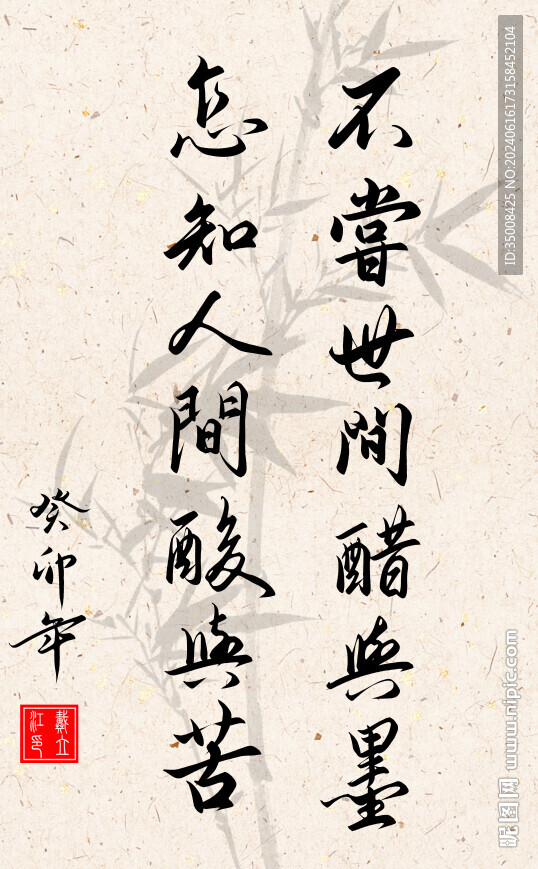 不嘗世間醋與墨
怎知人間酸與苦
癸卯年
戴立江印
ID:35008425 NO:20240616173158452104
昵图网 www.nipic.com